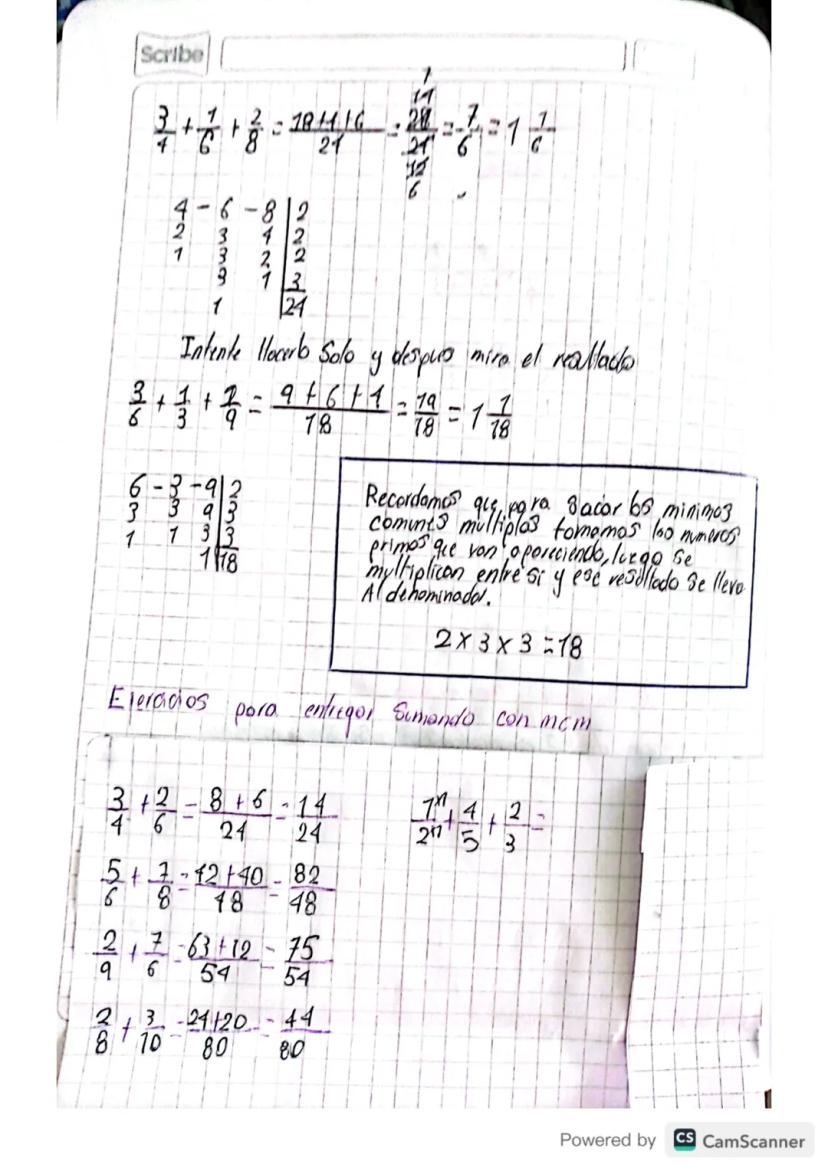 Scribe
3/4 + 1/6 + 2/8 = 18+4+6/24 = 28/24 = 7/6 = 1 1/6
4 - 6 - 8 | 2
2 3 4 | 2
1 3 2 | 2
3 1 | 3
1 24
Intente Hacerlo Solo y despues mira el resultado
3/6 + 1/3 + 1/9 = 9 + 6 + 4/18 = 19/18 = 1 1/18
6 - 3 - 9 | 2
3 3 9 | 3
1 1 3 | 3
1 | 18
Recordamos que para sacar los minimos
comunes multiplos tomamos los numeros
primos que van apareciendo, luego se
multiplican entre si y ese resultado se lleva
Al denominador.
2 x 3 x 3 = 18
Ejercicios para entregar Sumando con mcm
3/4 + 2/6 = 8 + 6/24 = 14/24
+ 4/5 + 2/3 =
5/6 + 7/8 = 42+40/48 = 82/48
2/9 + 7/6 = 63+12/54 = 75/54
2/8 + 3/10 = 24+20/80 = 44/80
Powered by CS CamScanner